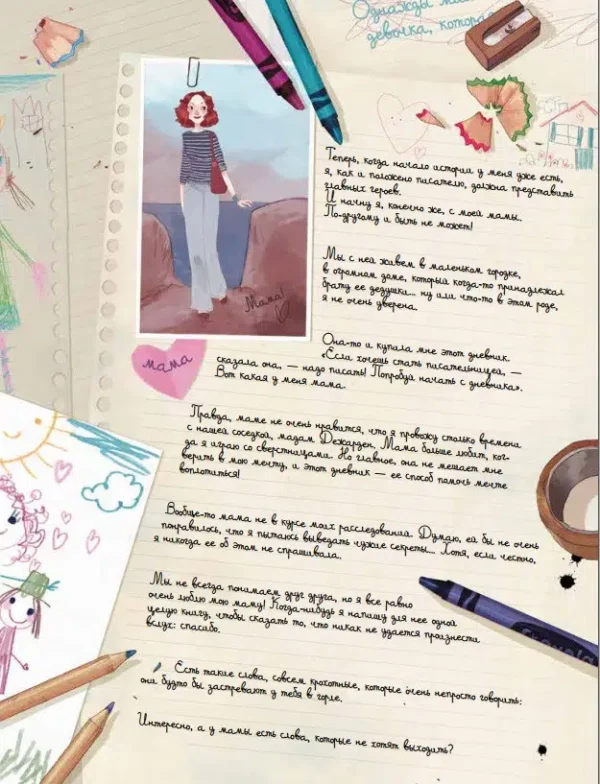 Однажды
девочка, которая
Теперь, когда начало истории у меня уже есть,
я, как и положено писателю, должна представить
главных героев.
И начну я, конечно же, с моей мамы.
По-другому и быть не может!
Мы с ней живем в маленьком городке,
в огромном доме, который когда-то принадлежал
брату ее дедушки... ну или что-то в этом роде,
я не очень уверена.
Мама!
мама
Она-то и купила мне этот дневник.
«Если хочешь стать писательницей, —
сказала она, — надо писать! Попробуй начать с дневника».
Вот какая у меня мама.
Правда, маме не очень нравится, что я провожу столько времени
с нашей соседкой, мадам Дежарден. Мама больше любит, ког-
да я играю со сверстницами. Но главное, она не мешает мне
верить в мою мечту, и этот дневник — ее способ помочь мечте
воплотиться!
Вообще-то мама не в курсе моих расследований. Думаю, ей бы не очень
понравилось, что я пытаюсь выведать чужие секреты... Хотя, если честно,
я никогда ее об этом не спрашивала.
Мы не всегда понимаем друг друга, но я все равно
очень люблю мою маму! Когда-нибудь я напишу для нее одной
целую книгу, чтобы сказать то, что никак не удается произнести
вслух: спасибо.
Есть такие слова, совсем крохотные, которые очень непросто говорить:
они будто бы застревают у тебя в горле.
Интересно, а у мамы есть слова, которые не хотят выходить?